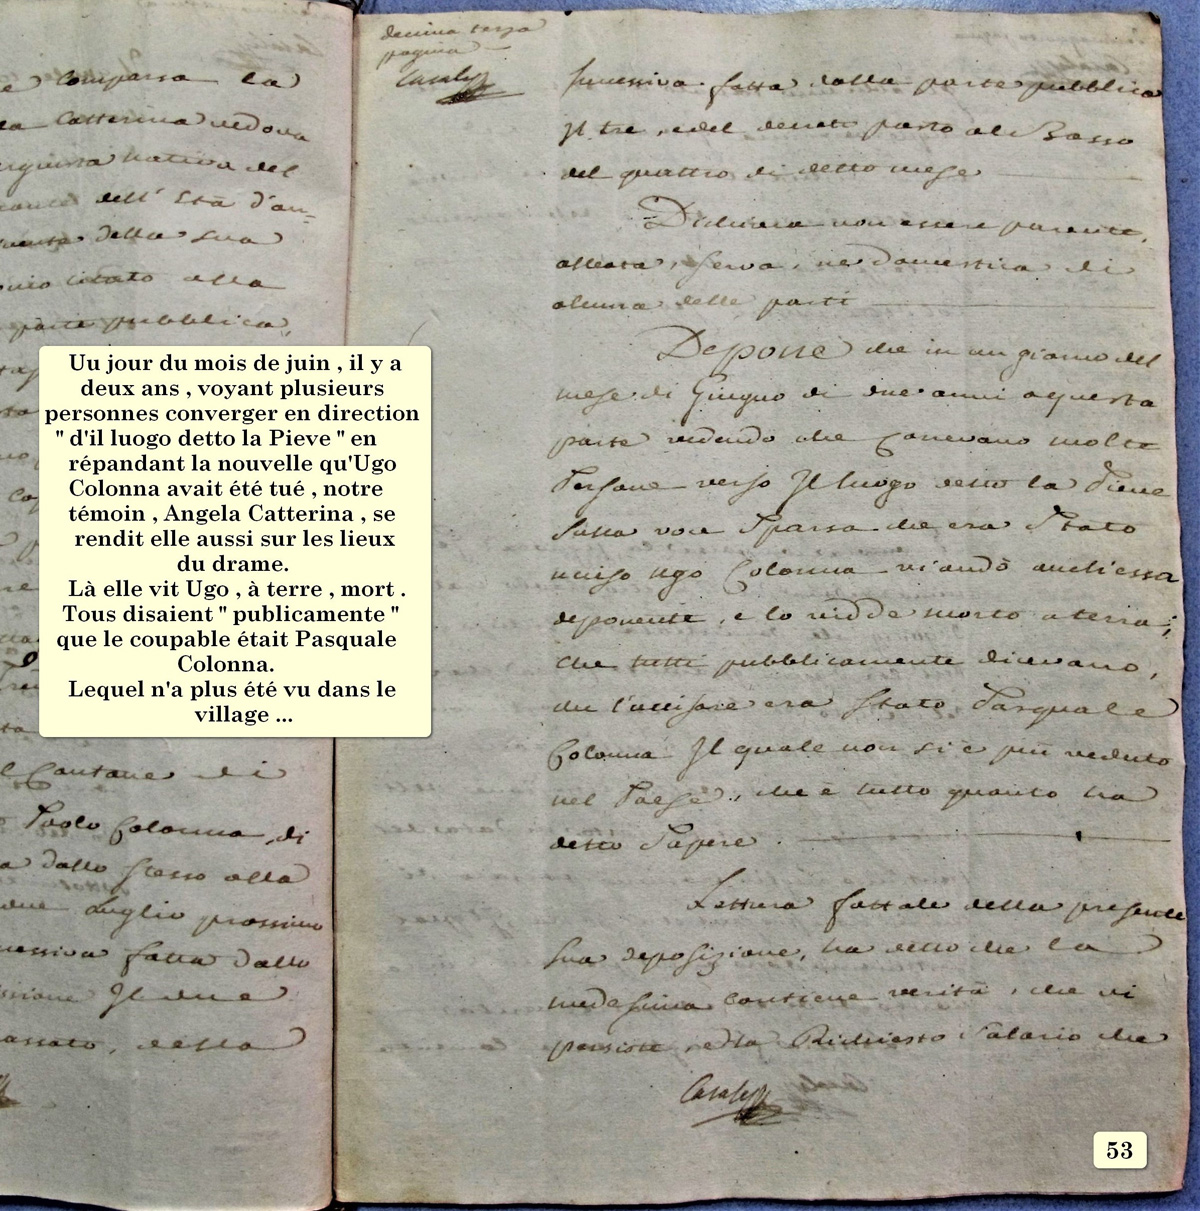 e comparsa la
Catterina vedova
nativa del
dell' Età d'an-
della sua
citato alla
parte pubblica,
Uu jour du mois de juin , il y a
deux ans , voyant plusieurs
personnes converger en direction
" d'il luogo detto la Pieve " en
répandant la nouvelle qu'Ugo
Colonna avait été tué , notre
témoin , Angela Catterina , se
rendit elle aussi sur les lieux
du drame.
Là elle vit Ugo , à terre , mort .
Tous disaient " publicamente "
que le coupable était Pasquale
Colonna.
Lequel n'a plus été vu dans le
village ...
Cantone di
Paolo Colonna, di
dallo stesso alla
due Luglio prossimo
fatta dallo
Il due
passato, della
decima terza
pagina
Casale
successiva fatta dalla parte pubblica
Il tre, e del decreto al Basso
del quattro di detto mese
Dichiara non essere parente,
alleata, serva, ne domestica di
alcuna delle parti
Depone che in un giorno del
mese di Giugno di due anni a questa
parte vedendo che correvano molte
Persone verso Il luogo detto la Pieve
sulla voce sparsa che era stato
ucciso Ugo Colonna vi andò anch'essa
deponente, e lo vidde morto a terra;
che tutti pubblicamente dicevano,
che l'uccisore era stato Pasquale
Colonna Il quale non si è più veduto
nel Paese, che è tutto quanto ha
detto sapere.
Lettura fattale della presente
sua deposizione, ha detto che la
medesima contiene verità, che vi
persiste, ed ha Richiesto salario che
Casale
53